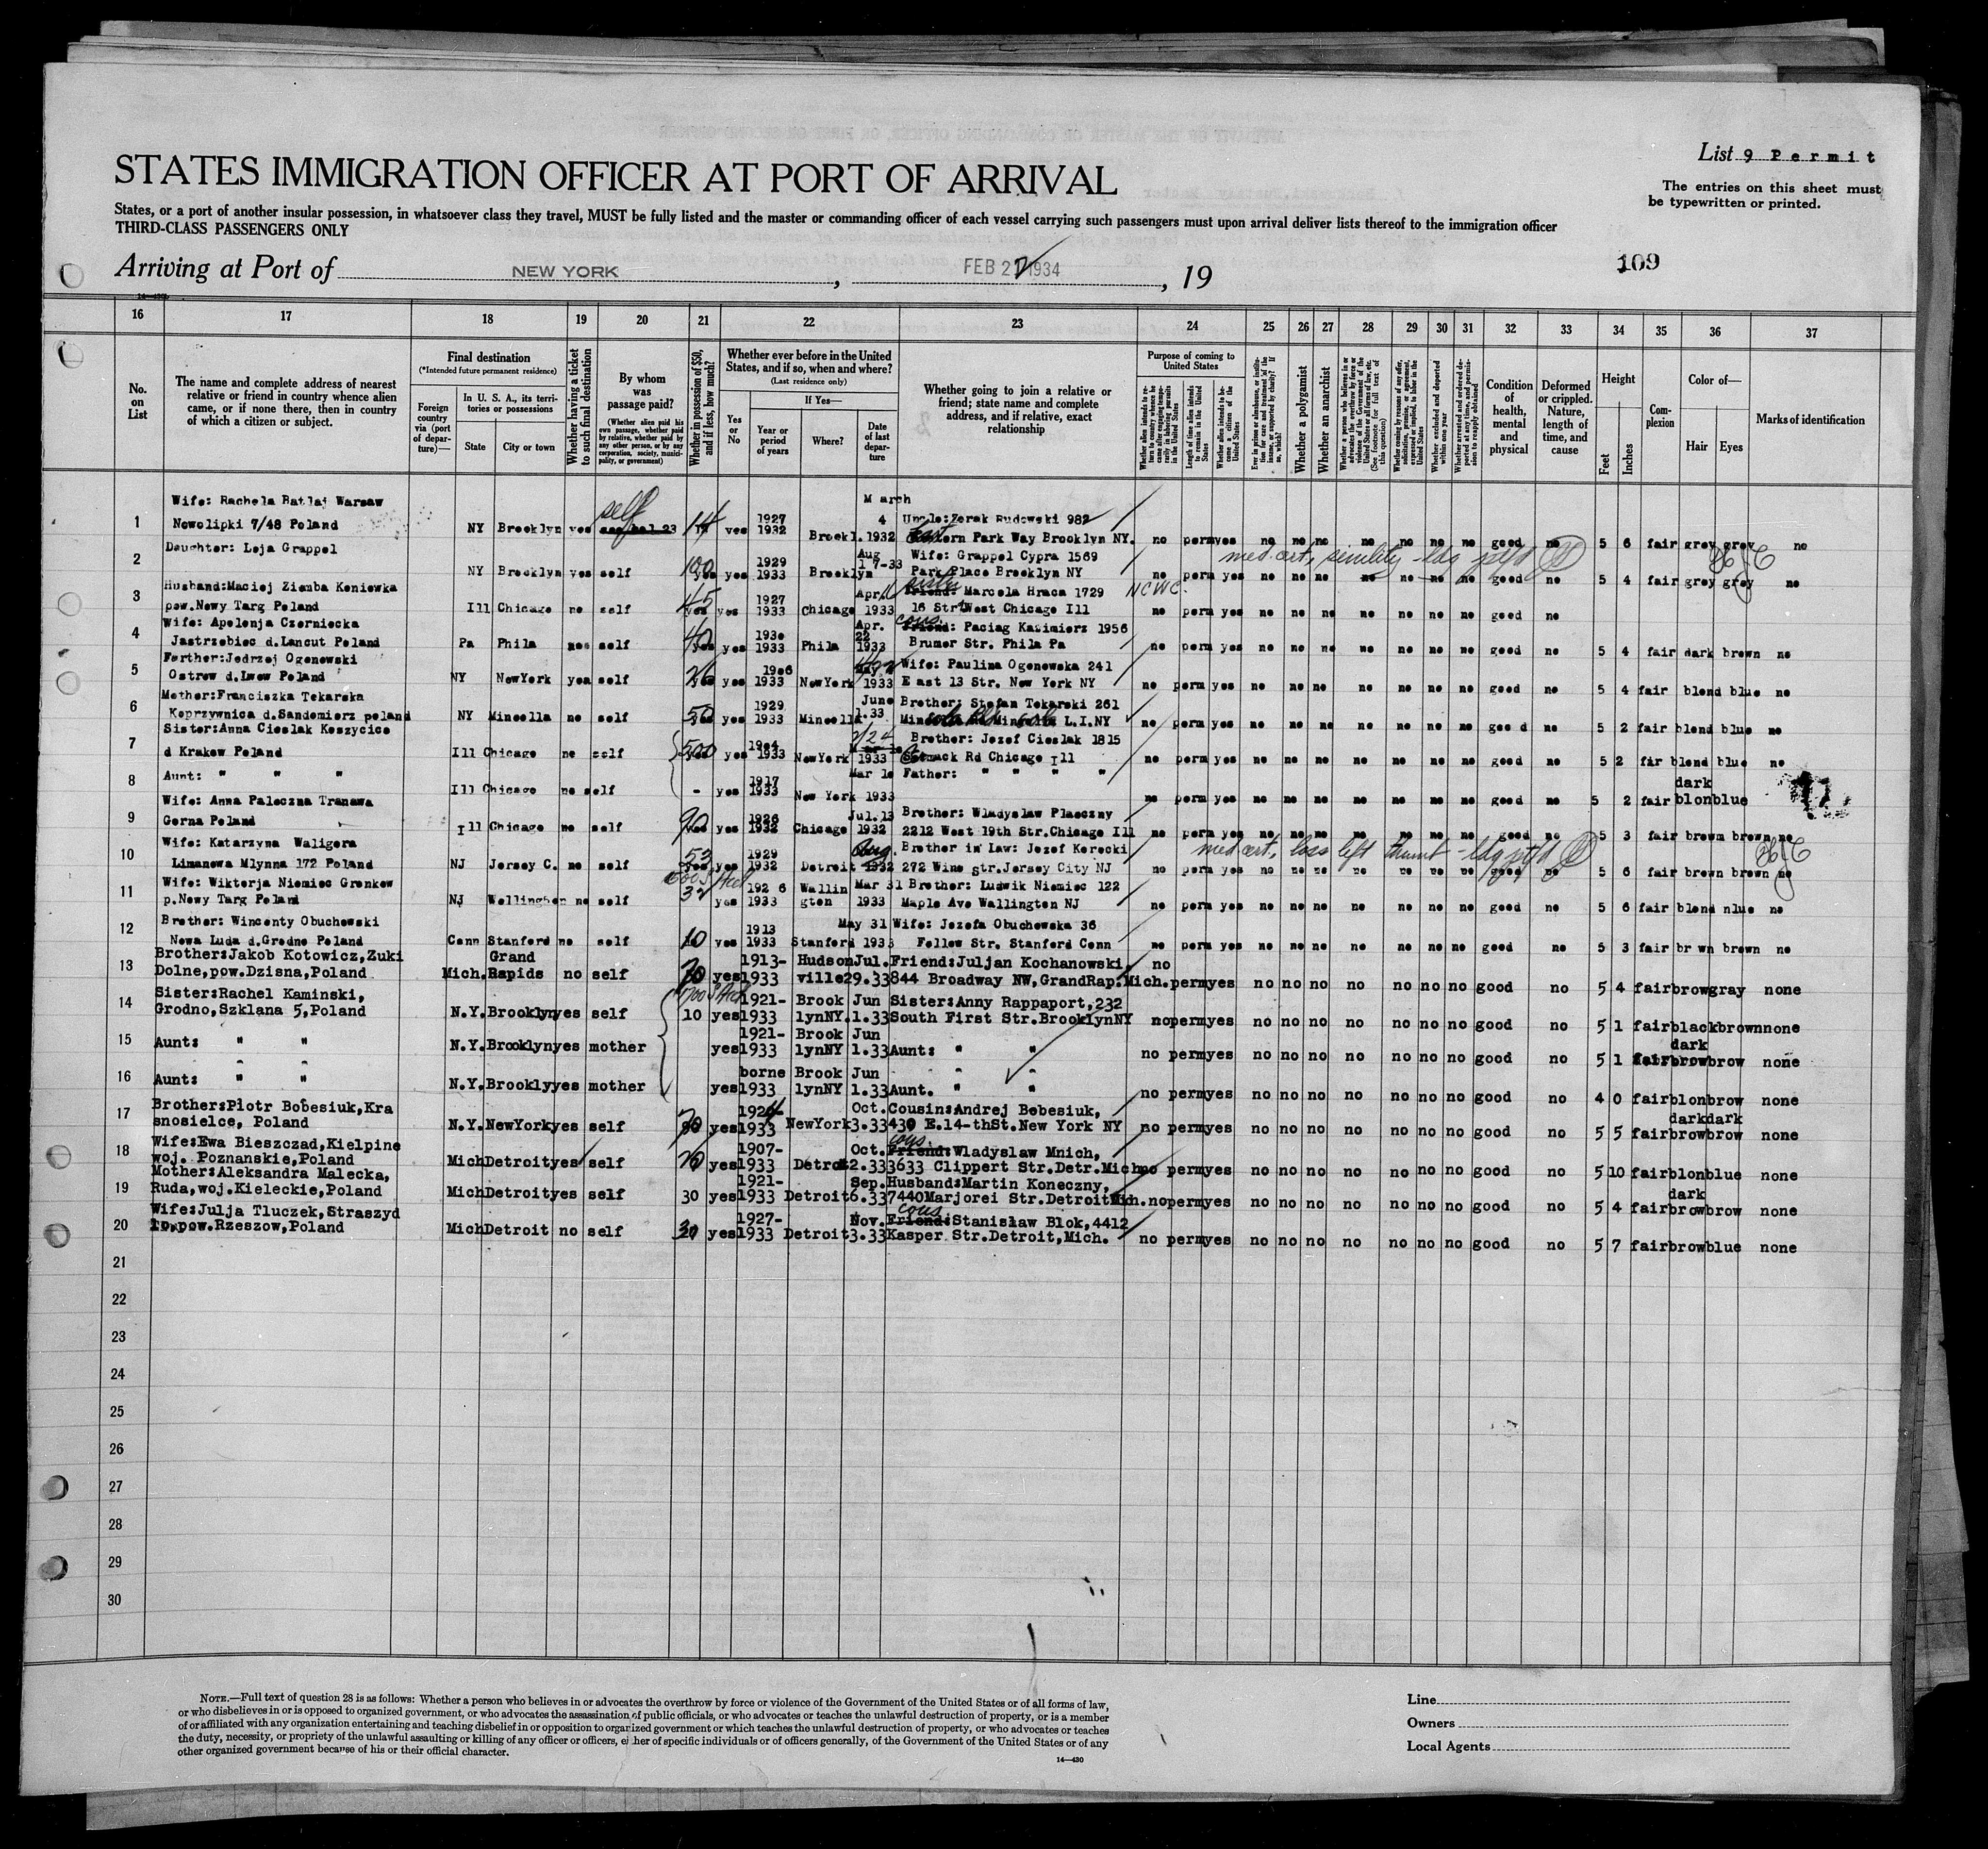 List 9 Permit
STATES IMMIGRATION OFFICER AT PORT OF ARRIVAL
The entries on this sheet must
be typewritten or printed.
States, or a port of another insular possession, in whatsoever class they travel, MUST be fully listed and the master or commanding officer of each vessel carrying such passengers must upon arrival deliver lists thereof to the immigration officer
THIRD-CLASS PASSENGERS ONLY
Arriving at Port of NEW YORK, FEB 21 1934, 19
109
16 17 18 19 20 21 22 23 24 25 26 27 28 29 30 31 32 33 34 35 36 37
No. on List
The name and complete address of nearest relative or friend in country whence alien came, or if none there, then in country of which a citizen or subject.
Final destination
(*Intended future permanent residence)
Foreign country via (port of departure)—
In U. S. A., its territories or possessions
State
City or town
Whether having a ticket to such final destination
By whom was passage paid?
(Whether alien paid his own passage, whether paid by relative, whether paid by any other person, or by any corporation, society, municipality, or government)
Whether in possession of $50, and if less, how much?
Whether ever before in the United States, and if so, when and where?
(Last residence only)
Yes or No
If Yes—
Year or period of years
Where?
Date of last departure
Whether going to join a relative or friend; state name and complete address, and if relative, exact relationship
Purpose of coming to United States
Whether alien intends to return to country whence he came after engaging temporarily in laboring pursuits in the United States
Length of time alien intends to remain in the United States
Whether alien intends to become a citizen of the United States
Whether a polygamist
Whether an anarchist
Condition of health, mental and physical
Deformed or crippled. Nature, length of time, and cause
Height
Feet
Inches
Complexion
Color of—
Hair
Eyes
Marks of identification
Wife: Rachela Batlaj Warsaw March
1 Nowolipki 7/48 Poland NY Brooklyn yes self 14 yes 1927 1932 Brookl. 4 1932 Uncle: Zerak Rudowski 982 Eastern Park Way Brooklyn NY. no perm yes no no no no no no no good no 5 6 fair grey grey no
med cert, senility - ldg
2 Daughter: Leja Grappel NY Brooklyn yes self 100 yes 1929 1933 Brooklyn Aug 17-33 Wife: Grappel Cypra 1569 Park Place Brooklyn NY no perm yes no no no no no no no good no 5 4 fair grey grey no
3 Husband: Maciej Ziemba Koniowka pow. Nowy Targ Poland Ill Chicago no self 45 yes 1927 1933 Chicago Apr. 1933 sister Friend: Marcela Hraca 1729 16 Str West Chicago Ill NCWC. no perm yes no no no no no no no good no
4 Wife: Apolonja Czerniecka Jastrzebiec d. Lancut Poland Pa Phila yes self 40 yes 1930 1933 Phila Apr. 22 1933 cous. Friend: Paciag Kazimierz 1956 Brumer Str. Phila Pa no perm yes no no no no no no no good no 5 4 fair dark brown no
5 Farther: Jedrzej Ogonowski Ostrow d. Lwow Poland NY NewYork yes self 26 yes 1906 1933 NewYork 1933 Wife: Paulina Ogonowska 241 East 13 Str. New York NY no perm yes no no no no no no no good no 5 4 fair blond blue no
6 Mother: Franciszka Tekarska Koprzywnica d. Sandomierz poland NY Mineola no self 50 yes 1929 1933 Mineola June 1.33 Brother: Stefan Tekarski 261 L.I.NY no perm yes no no no no no no no good no 5 2 fair blond blue no
7 Sister: Anna Cieslak Koszycice d Krakow Poland Ill Chicago no self 500 yes 1904 1933 NewYork 1933 Brother: Jozef Cieslak 1815 Rd Chicago Ill no perm yes no no no no no no no good no 5 2 fair blond blue no
8 Aunt: " " " Ill Chicago no self - yes 1917 1933 New York Mar 10 1933 Father: " " " " no perm yes no no no no no no no good no 5 2 fair dark blon blue
9 Wife: Anna Paleczna Tranawa Gorna Poland Ill Chicago no self 90 yes 1926 1932 Chicago Jul. 13 1932 Brother: Wladyslaw Plaeczny 2212 West 19th Str. Chicago Ill no perm yes no no no no no no no good no 5 3 fair brown brown no
med cert, loss left thumb - ldg
10 Wife: Katarzyna Waligora Limanowa Mlynna 172 Poland NJ Jersey C. no self 53 yes 1929 1932 Detroit Aug. 1932 Brother in Law: Jozef Kerecki 272 Wine str. Jersey City NJ no perm yes no no no no no no no good no 5 6 fair brown brown no
11 Wife: Wikterja Niemiec Gronkow p. Nowy Targ Poland NJ Wellinghen no self yes 1926 1933 Wallin gton Mar 31 1933 Brother: Ludwik Niemiec 122 Maple Ave Wallington NJ no perm yes no no no no no no no good no 5 6 fair blond nlue no
12 Brother: Wincenty Obuchowski Nowa Luda d. Grodno Poland Conn Stanford no self 10 yes 1913 1933 Stanford May 31 1933 Wife: Jozefa Obuchowska 36 Fellow Str. Stanford Conn no perm yes no no no no no no no good no 5 3 fair br wn brown no
13 Brother: Jakob Kotowicz, Zuki Dolne, pow. Dzisna, Poland Mich. Grand Rapids no self 70 yes 1913-1933 Hudson ville Jul. 29.33 Friend: Juljan Kochanowski, 844 Broadway NW, GrandRap. Mich. no perm yes no no no no no no no good no 5 4 fair brow gray none
14 Sister: Rachel Kaminski, Grodno, Szklana 5, Poland N.Y. Brooklyn yes self 10 yes 1921-1933 Brook lynNY. Jun 1.33 Sister: Anny Rappaport, 232 South First Str. BrooklynNY no perm yes no no no no no no no good no 5 1 fair black brown none
15 Aunt: " " N.Y. Brooklyn yes mother yes 1921-1933 Brook lynNY Jun 1.33 Aunt: " " no perm yes no no no no no no no good no 5 1 fair dark brow brow none
16 Aunt: " " N.Y. Brookly yes mother yes borne 1933 Brook lynNY Jun 1.33 Aunt. " " no perm yes no no no no no no no good no 4 0 fair blon brow none
17 Brother: Piotr Bobesiuk, Kra snosielce, Poland N.Y. NewYork yes self 70 yes 1924 1933 NewYork Oct. 3.33 Cousin: Andrej Bobesiuk, 430 E. 14-thSt. New York NY no perm yes no no no no no no no good no 5 5 fair dark brow dark brow none
18 Wife: Ewa Bieszczad, Kielpine woj. Poznanskie, Poland Mich Detroit yes self 20 yes 1907-1933 Detroit Oct. 2.33 cous. Friend: Wladyslaw Mnich, 3633 Clippert Str. Detr. Mich no perm yes no no no no no no no good no 5 10 fair blon blue none
19 Mother: Aleksandra Malecka, Ruda, woj. Kieleckie, Poland Mich Detroit yes self 30 yes 1921-1933 Detroit Sep. 6.33 Husband: Martin Koneczny, 7440 Marjorei Str. Detroit Mich. no perm yes no no no no no no no good no 5 4 fair dark brow brow none
20 Wife: Julja Tluczek, Straszyd lo, pow. Rzeszow, Poland Mich Detroit no self 30 yes 1927-1933 Detroit Nov. 3.33 cous. Friend: Stanislaw Blok, 4412 Kasper Str. Detroit, Mich. no perm yes no no no no no no no good no 5 7 fair brow blue none
21
22
23
24
25
26
27
28
29
30
NOTE.—Full text of question 28 is as follows: Whether a person who believes in or advocates the overthrow by force or violence of the Government of the United States or of all forms of law,
or who disbelieves in or is opposed to organized government, or who advocates the assassination of public officials, or who advocates or teaches the unlawful destruction of property, or is a member
of or affiliated with any organization entertaining and teaching disbelief in or opposition to organized government or which teaches the unlawful destruction of property, or who advocates or teaches
the duty, necessity, or propriety of the unlawful assaulting or killing of any officer or officers, either of specific individuals or of officers generally, of the Government of the United States or of any
other organized government because of his or their official character.
14—430
Line
Owners
Local Agents